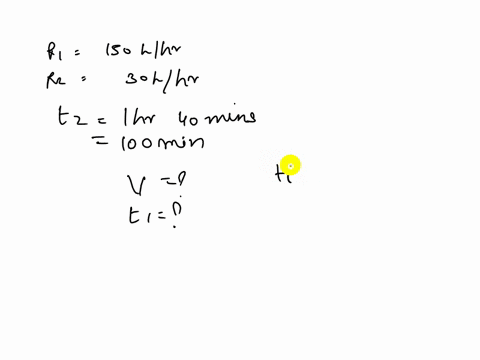 R1 = 150 L/hr
R2 = 30 L/hr
t2 = 1 hr 40 mins
= 100 min
V = ?
t1 = ?
t1